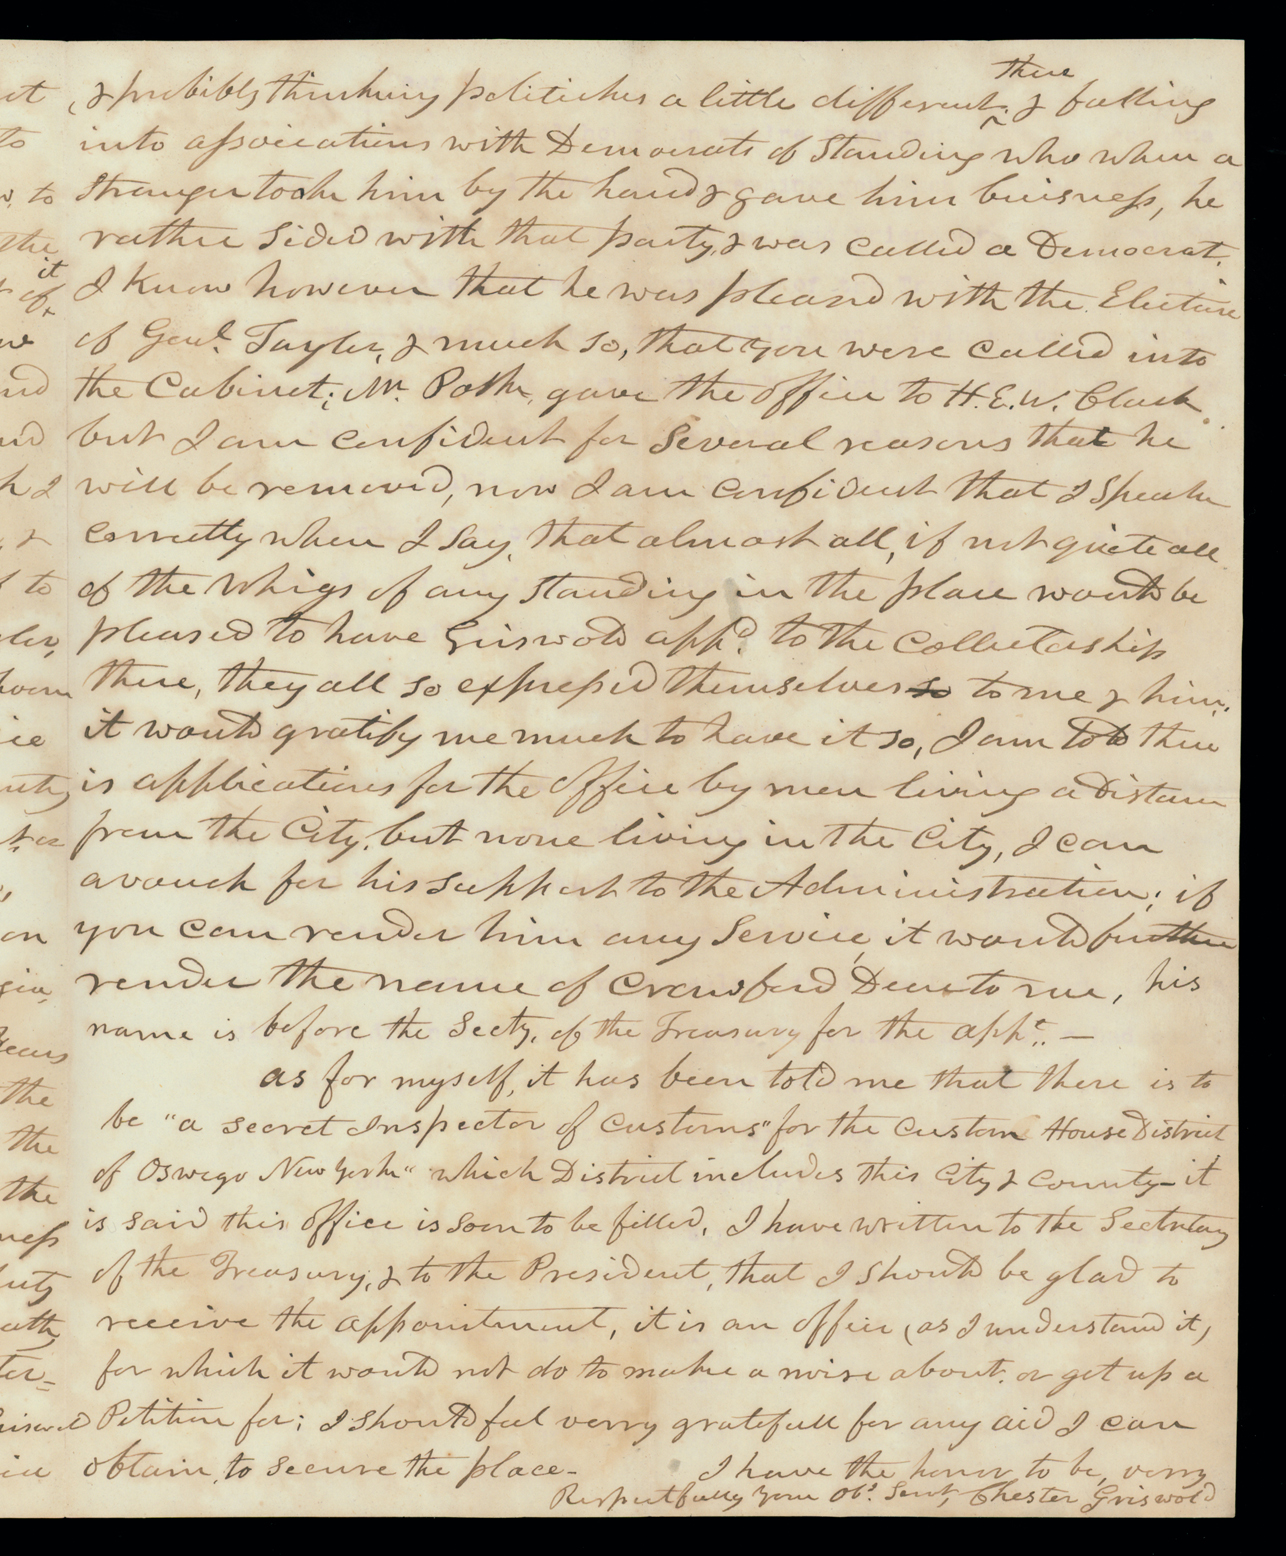 there
, & probibly thinking politickes a little different ^ & falling
into associations with Democrats of Standing who when a
Stranger took him by the hand & gave him buisness, he
rather Sided with that party, & was called a Democrat.
I Know however that he was pleased with the Election
of Genl. Taylor, & much so, that you were called into
the Cabinet; Mr. Polk, gave the office to H.E.W. Clark
but I am confident for Several reasons that he
will be removed, now I am confident that I Speake
correctly when I Say, that almost all, if not quite all
of the Whigs of any Standing in the place would be
pleased to have Griswold appd. to the Collectorship
there, they all so expressed themselves so to me & him,
it would gratify me much to have it so, I am told there
is applications for the office by men living a distance
from the City, but none living in the City, I can
avouch for his Support to the Administration; if
you can render him any Service, it would further
render the name of Crawford Dear to me, his
name is before the Secty. of the Treasury for the appt. —
as for myself, it has been told me that there is to
be "a secret Inspector of Customs" for the Custom House District
of Oswego New York" which District includes this City & County – it
is said this office is soon to be filled, I have written to the Sectretary
of the Treasury, & to the President, that I should be glad to
receive the appointment, it is an office (as I understand it)
for which it would not do to make a noise about. or get up a
Petition for; I should feel verry gratefull for any aid I can
obtain, to secure the place –
I have the honor to be, verry
Respectfully your Obt. Servt, Chester Griswold